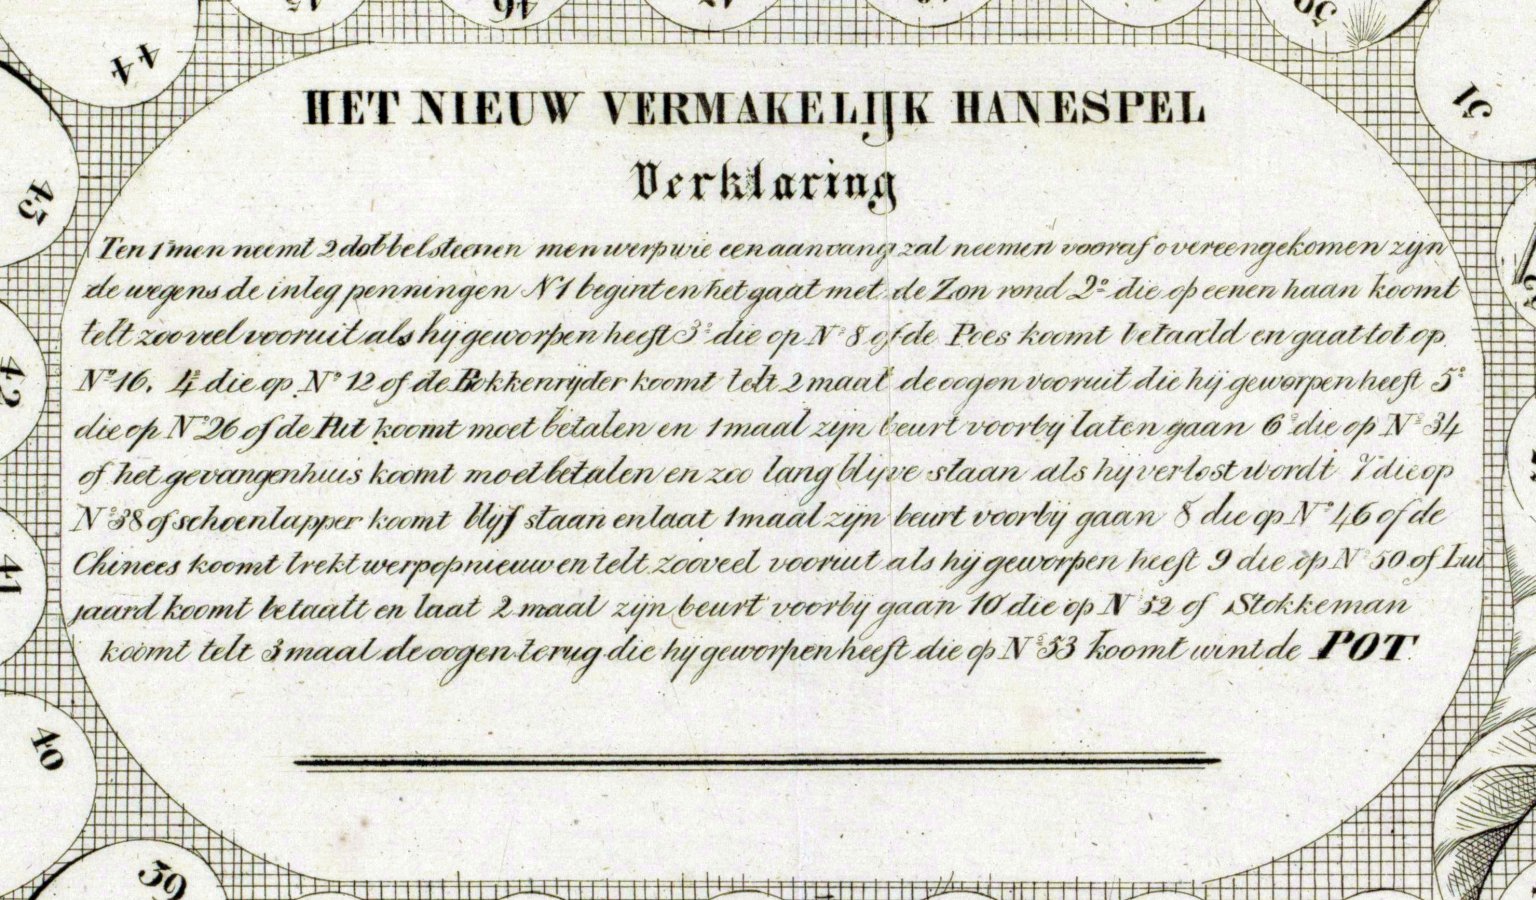 44
45
46
47
50
51
43
42
41
40
39
HET NIEUW VERMAKELIJK HANESPEL
Verklaring
Ten 1e men neemt 2 dobbelsteenen men werp wie een aanvang zal neemen vooraf overeengekomen zijn
de wegens de inleg penningen No 1 begint en het gaat met de Zon rond 2o die op eenen haan koomt
telt zooveel vooruit als hij geworpen heeft 3o die op No 8 of de Poes koomt betaald en gaat tot op
No 16. 4o die op No 12 of de Bokkenryder koomt telt 2 maal de oogen vooruit die hij geworpen heeft 5o
die op No 26 of de Put koomt moet betalen en 1 maal zijn beurt voorby laten gaan 6o die op No 34
of het gevangenhuis koomt moet betalen en zoo lang blijve staan als hij verlost wordt 7 die op
No 38 of schoenlapper koomt blijf staan en laat 1 maal zijn beurt voorbij gaan 8 die op No 46 of de
Chinees koomt trekt werp opnieuw en telt zooveel vooruit als hij geworpen heeft 9 die op No 50 of Lui
jaard koomt betaalt en laat 2 maal zijn beurt voorby gaan 10 die op N 52 of Stokkeman
koomt telt 3 maal de oogen terug die hij geworpen heeft die op No 53 koomt wint de POT